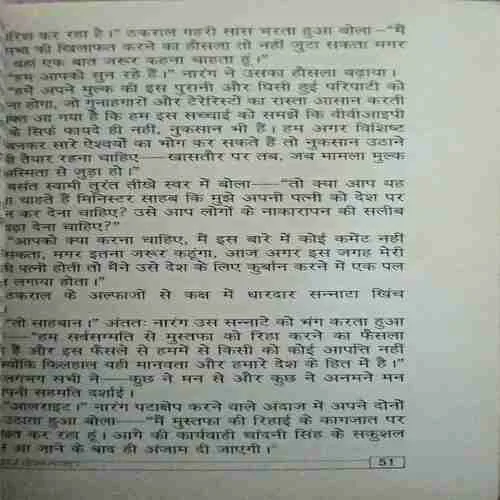 कर रहा है।" ठकराल गहरी सांस भरता हुआ बोला–"मैं
की खिलाफत करने का हौसला तो नहीं जुटा सकता मगर
यहां एक बात जरूर कहना चाहता हूं।"
"हम आपको सुन रहे हैं।" नारंग ने उसका हौसला बढ़ाया।
"हमें अपने मुल्क की इस पुरानी और घिसी हुई परिपाटी को
होगा, जो गुनाहगारों और टेरेरिस्टों का रास्ता आसान करती
आ गया है कि हम इस सच्चाई को समझें कि वीवीआइपी
के सिर्फ फायदे ही नहीं, नुकसान भी हैं। हम अगर विशिष्ट
बनकर सारे ऐश्वर्यों का भोग कर सकते हैं तो नुकसान उठाने
तैयार रहना चाहिए—खासतौर पर तब, जब मामला मुल्क
अस्मिता से जुड़ा हो।"
बसंत स्वामी तुरंत तीखे स्वर में बोला—"तो क्या आप यह
चाहते हैं मिनिस्टर साहब कि मुझे अपनी पत्नी को देश पर
कर देना चाहिए? उसे आप लोगों के नाकारापन की सलीब
देना चाहिए?"
"आपको क्या करना चाहिए, मैं इस बारे में कोई कमेंट नहीं
सकता, मगर इतना जरूर कहूंगा, आज अगर इस जगह मेरी
पत्नी होती तो मैंने उसे देश के लिए कुर्बान करने में एक पल
लगाया होता।"
ठकराल के अल्फाजों से कक्ष में धारदार सन्नाटा खिंच
"तो साहबान।" अंततः नारंग उस सन्नाटे को भंग करता हुआ
"हम सर्वसम्मति से मुस्तफा को रिहा करने का फैसला
हैं और इस फैसले से हममें से किसी को कोई आपत्ति नहीं
क्योंकि फिलहाल यही मानवता और हमारे देश के हित में है।"
लगभग सभी ने—कुछ ने मन से और कुछ ने अनमने मन
अपनी सहमति दर्शाई।
"आलराइट।" नारंग पटाक्षेप करने वाले अंदाज में अपने दोनों
उठाता हुआ बोला—"मैं मुस्तफा की रिहाई के कागजात पर
कर रहा हूं। आगे की कार्यवाही चांदनी सिंह के सकुशल
आ जाने के बाद ही अंजाम दी जाएगी।"
51